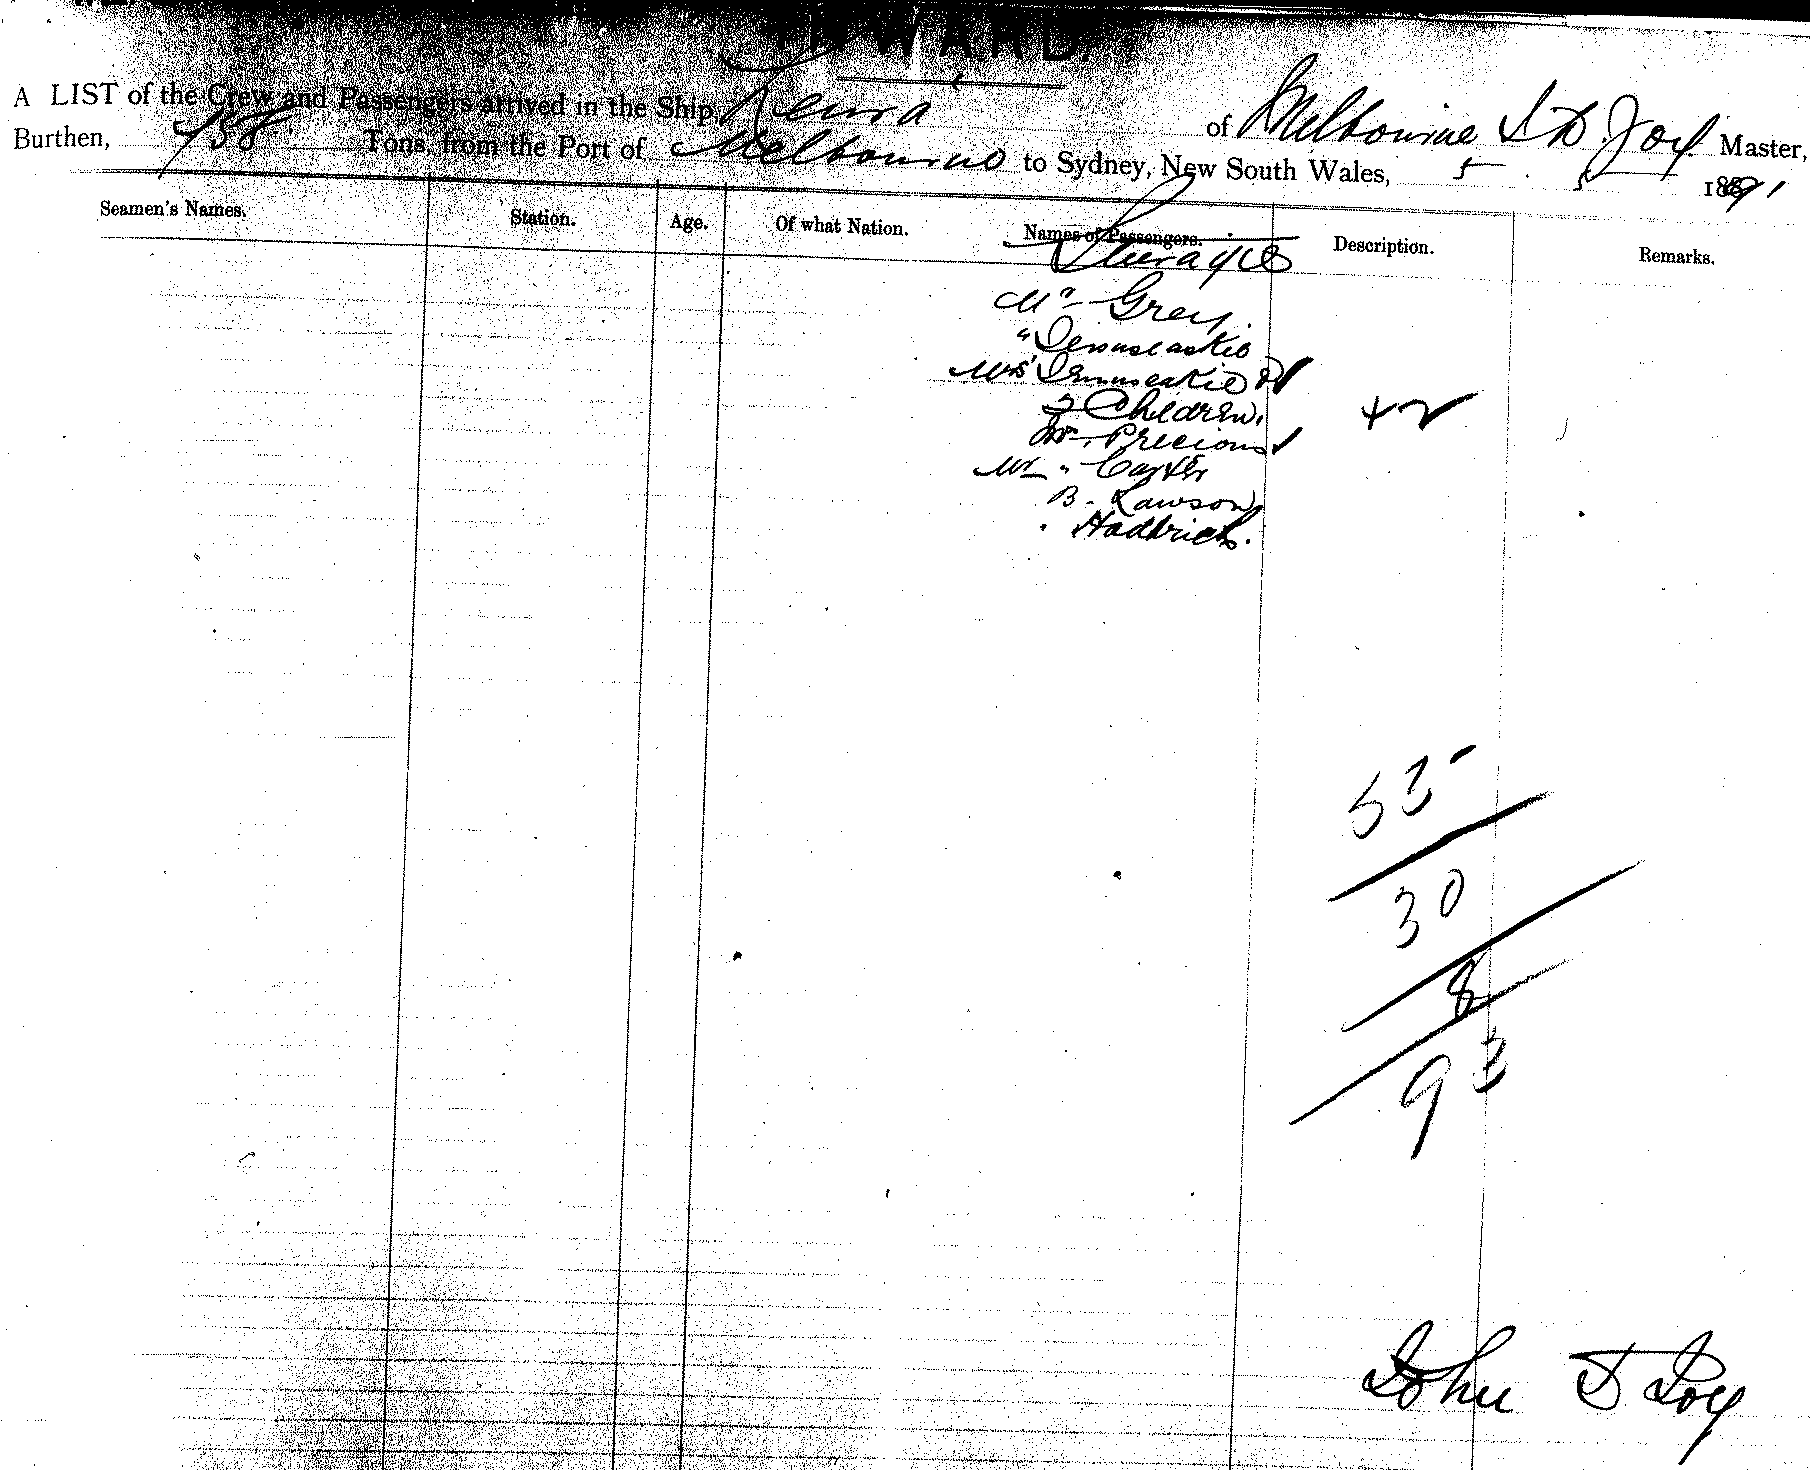 INWARD.
A LIST of the Crew and Passengers arrived in the Ship, of Melbourne J D Joy Master,
Burthen, 458 Tons, from the Port of Melbourne to Sydney, New South Wales, 5 . 5 1891
Seamen's Names. Station. Age. Of what Nation. Names of Passengers. Description. Remarks.
Steerage
Mr Grey
"
Mrs &
2 Children +2
Mr Precious
Mr " Carter
B. Lawson
Hadbrick
55
30
8
93
John D Joy